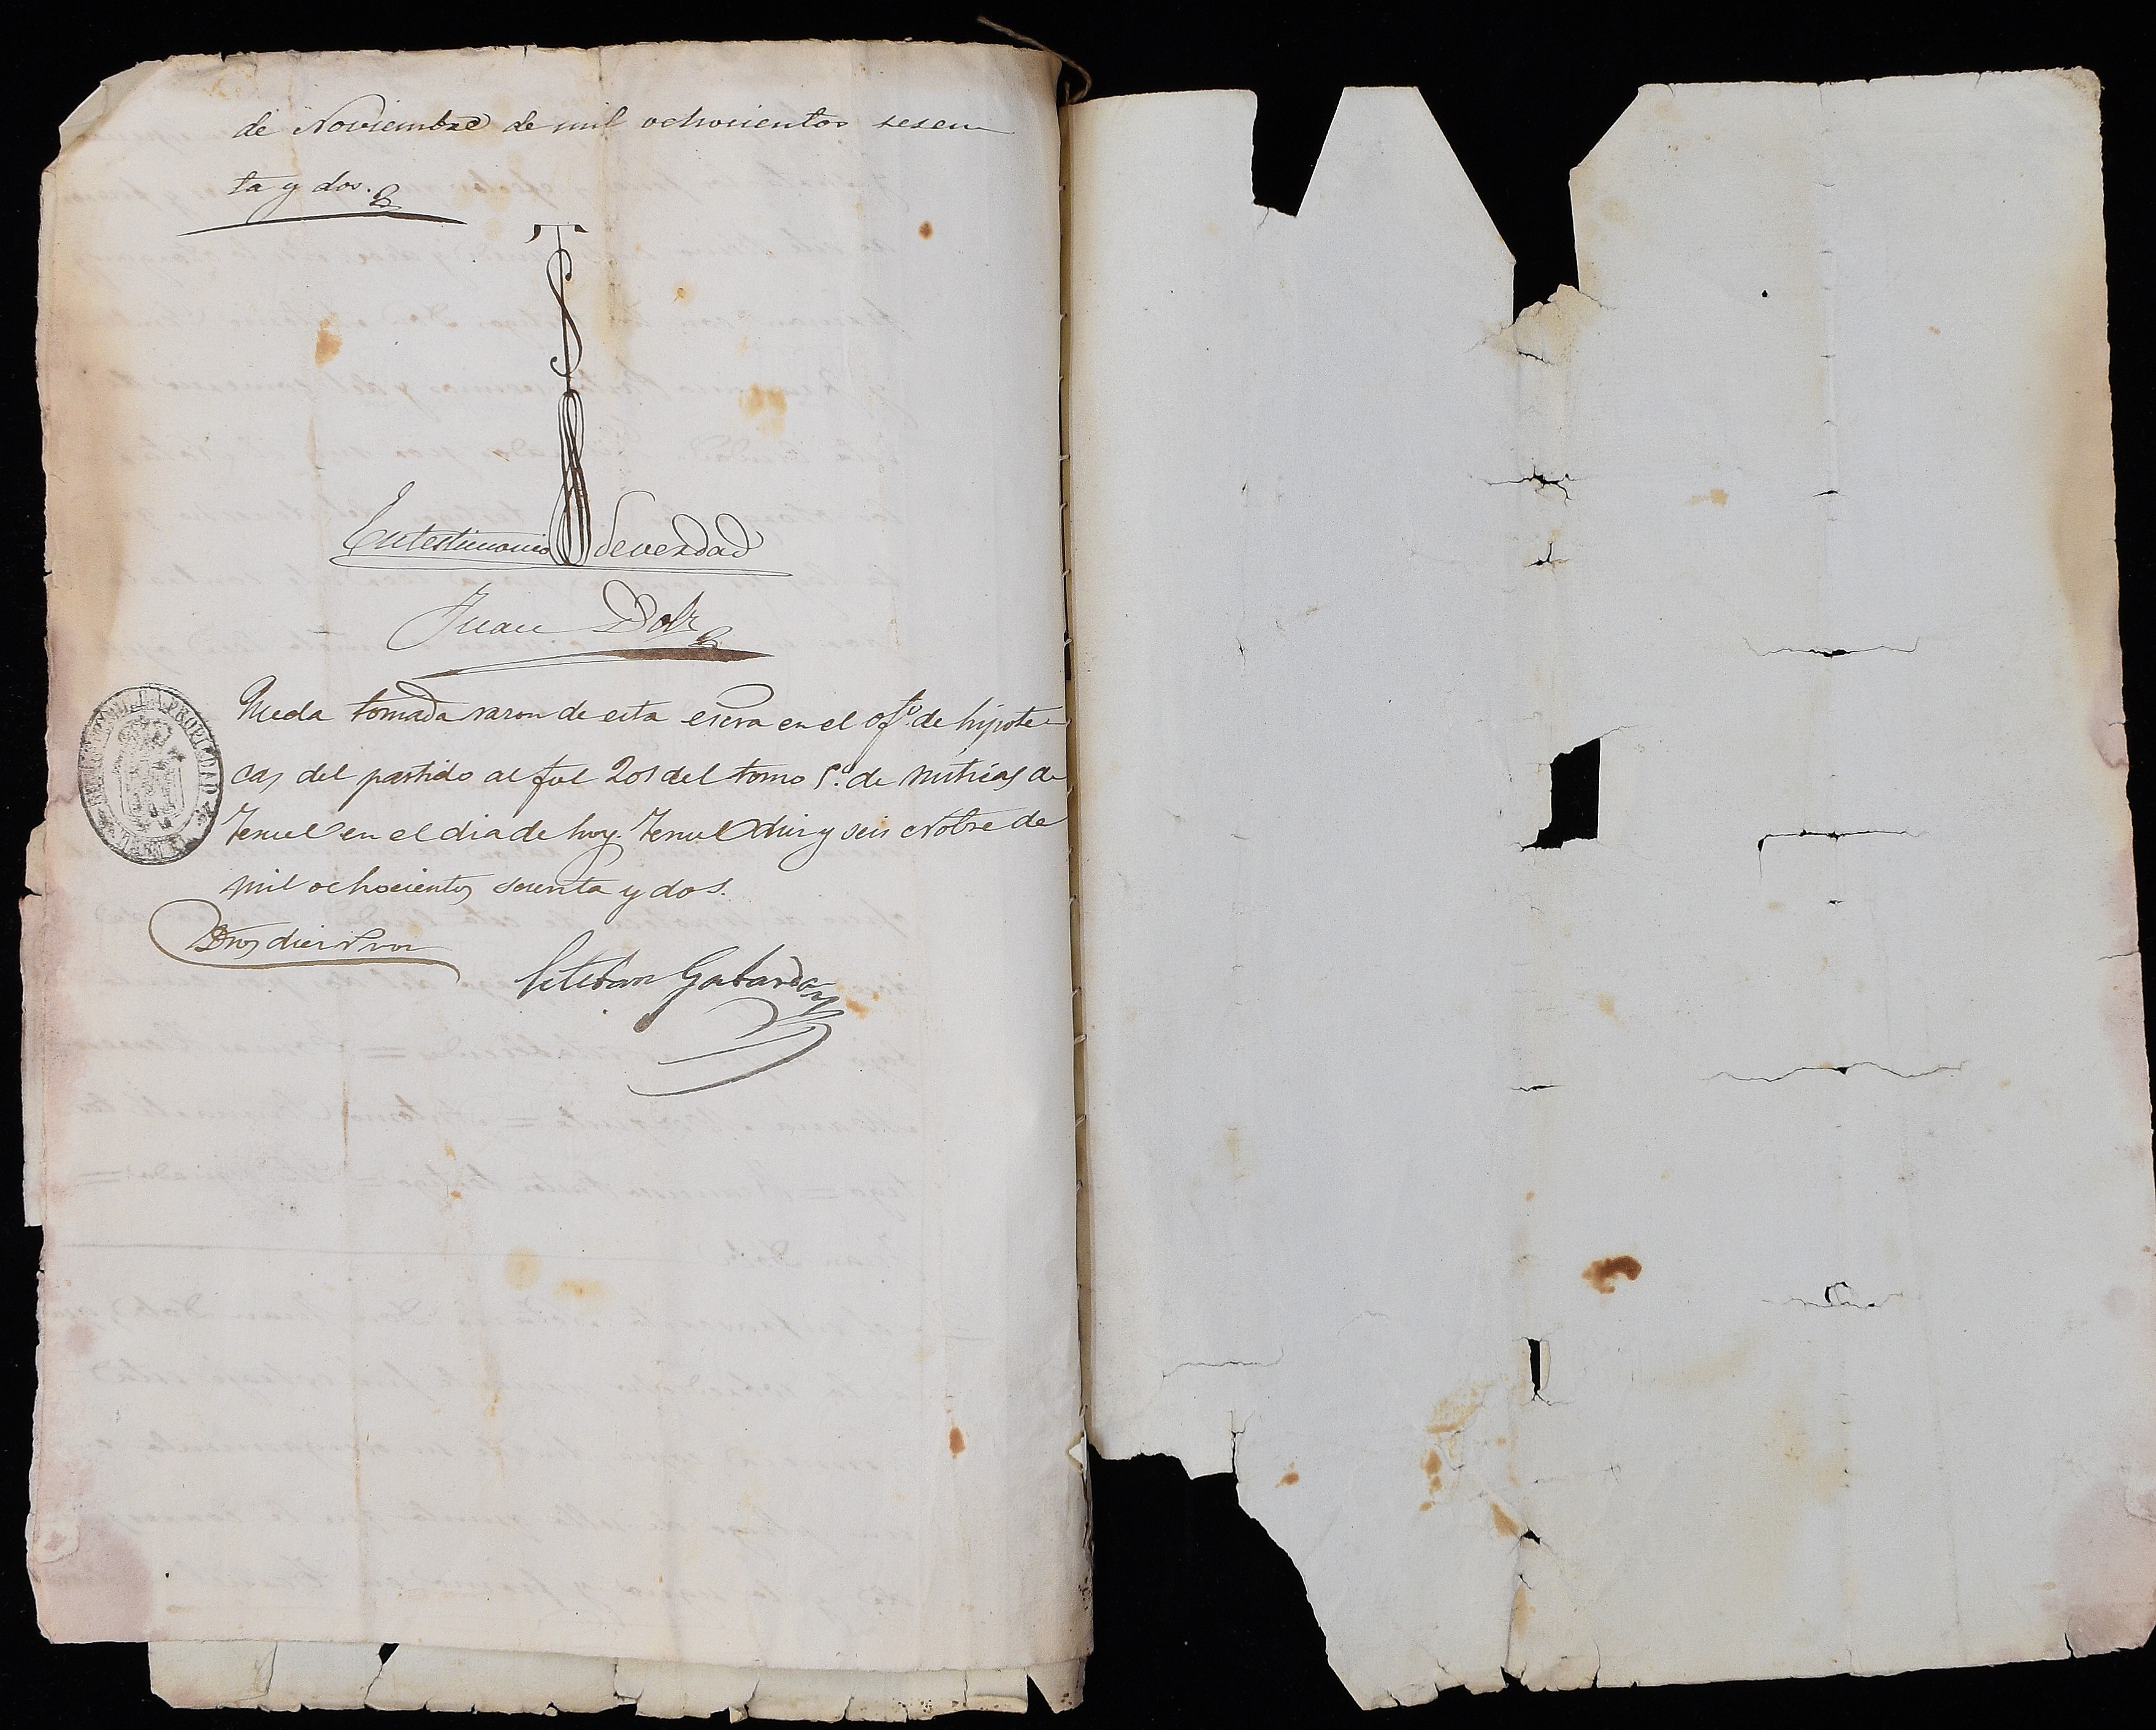 de Noviembre de mil ochocientos sesen
ta y dos.
En testimonio de verdad
Juan Dolz
Queda tomada razon de esta escra en el ofº. de hipote-
cas del partido al fol 201 del tomo 5º. de rusticas de
Teruel en el dia de hoy. Teruel diez y seis Nobre de
mil ochocientos sesenta y dos.
Dros diez rs von
Esteban Gabarda
REGISTRO DE LA PROPIEDAD
TERUEL